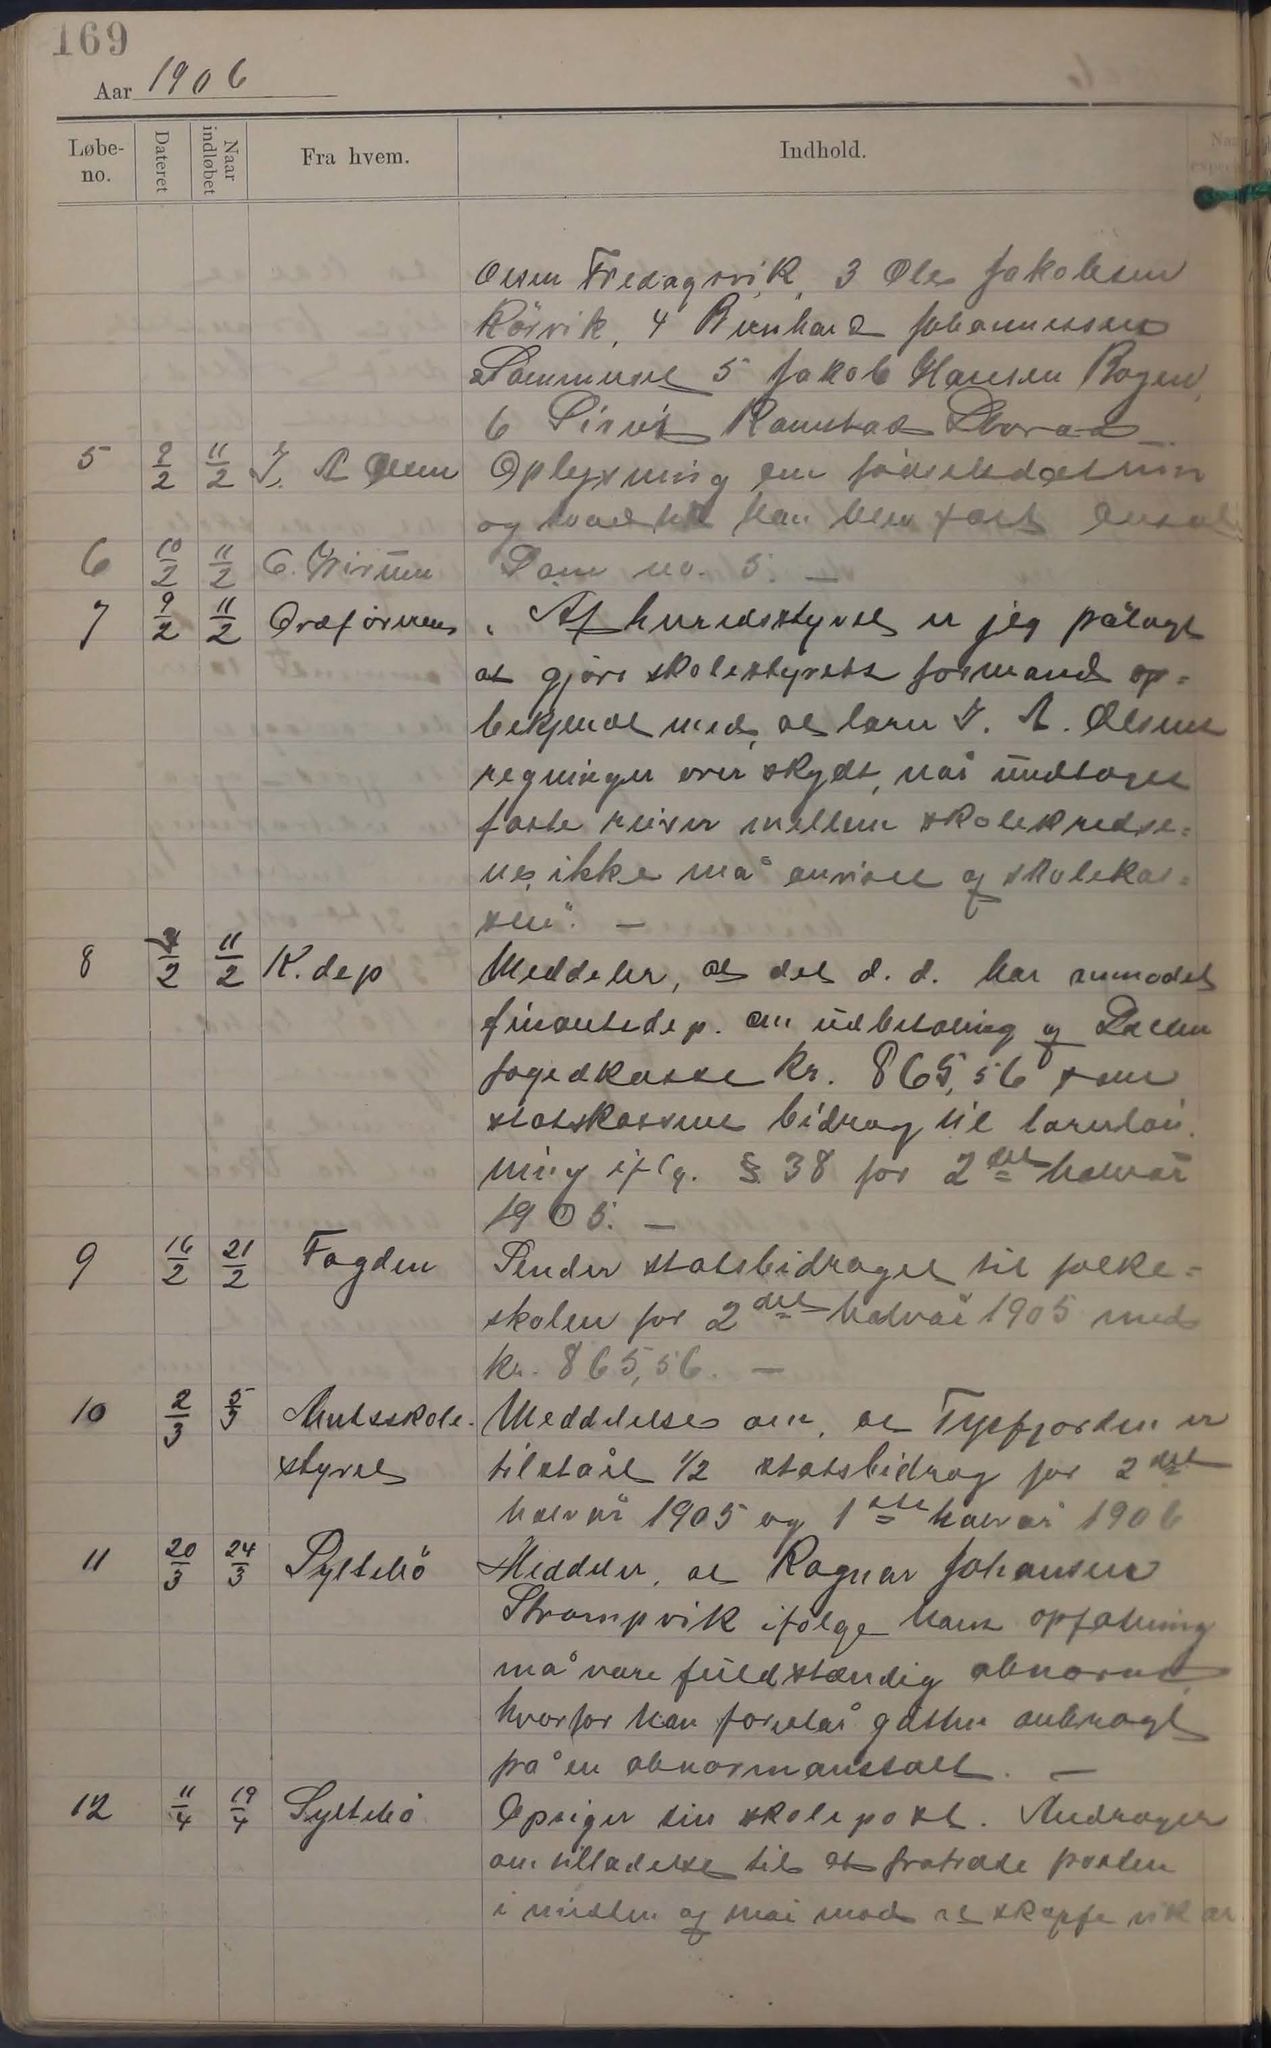 169
Aar 1906
Løbe-no. Dateret Naar indløbet Fra hvem. Indhold.
Olsen Fredagsvik, 3 Ole Jakobsen
Körvik, 4 Bernhard Johannessen
5 Jakob Hansen Bogen,
6 Ramstad Storad
5 9/2 11/2 I. A Olsen Oplysning om födselsdatum
og han blev
6 10/2 11/2 Som no. 5. —
7 9/2 11/2 Ordförerens „Af herredsstyret er jeg pålagt
at gjöre skolestyrets formand op=
bekjendt med, at lærer I. A. Olsens
regninger over skyds, når undtages
faste reiser mellem skolekredse=
ne, ikke må anvises af skolekas=
sen". —
8 2 11/2 K. dep Meddeler, at det d. d. har anmodet
finantsdep. om udbetaling af Salten
fogedkasse kr. 865,56 som
statskassens bidrag til lærerlön.
ning iflg. § 38 for 2det halvår
1905. —
9 16/2 21/2 Fogden Sender statsbidraget til folke=
skolen for 2det halvår 1905 med
kr. 865,56. —
10 2/3 5/3 Amtsskole- Meddelelse om, at Tysfjorden er
styret tilstået 1/2 statsbidrag for 2det
halvår 1905 og 1ste halvår 1906
11 20/3 24/3 Syltebö Meddeler, at Ragnar Johansen
Strompvik ifölge hans opfatning
må være fuldstændig abnorm,
hvorfor han foreslår gutten anbragt
på en abnormanstalt. —
12 11/4 19/4 Syltebö Opsiger sin skolepost. Andrager
om tilladelse til at fratræde posten
i midten af mai mod at skaffe vikar